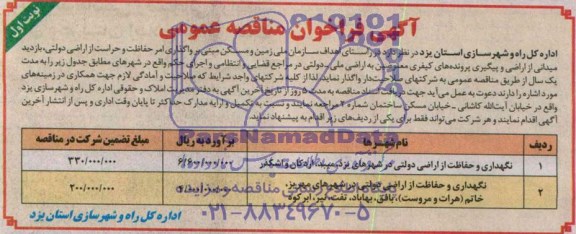 نوبت اول
آگهی فراخوان مناقصه عمومی
اداره کل راه و شهرسازی استان یزد در نظر دارد در راستای اهداف سازمان ملی زمین و مسکن مبنی بر واگذاری امر حفاظت و حراست از اراضی دولتی، بازدید
میدانی از اراضی و پیگیری پرونده‌های کیفری معترضین به اراضی ملی و دولتی در مراجع قضایی، انتظامی و اجرای حکم واقع در شهرهای مطابق جدول زیر را به مدت
یک سال از طریق مناقصه عمومی به شرکتهای صلاحیت‌دار واگذار نماید. لذا از کلیه شرکتهای واجد شرایط که صلاحیت و آمادگی لازم جهت همکاری در زمینه‌های
مورد اشاره را دارند دعوت به عمل می‌آید جهت دریافت اسناد مناقصه به مدت ۵ روز از تاریخ آخرین آگهی به دفتر مدیریت املاک و حقوقی اداره کل راه و شهرسازی یزد
واقع در خیابان آیت‌الله کاشانی - خیابان مسکن ساختمان شماره ۲ مراجعه نمایند و نسبت به تکمیل و ارایه مدارک حداکثر تا پایان وقت اداری و پس از انتشار آخرین
آگهی اقدام نمایند و هر شرکت می‌تواند فقط برای یکی از ردیف‌های زیر اقدام به پیشنهاد نماید.
ردیف نام شهرها برآورد به ریال مبلغ تضمین شرکت در مناقصه
۱ نگهداری و حفاظت از اراضی دولتی در شهرهای یزد، میبد، اردکان و اشکذر ۳۳۰/۰۰۰/۰۰۰
۲ نگهداری و حفاظت از اراضی دولتی در شهرهای مهریز، خاتم (هرات و مروست)، بافق، بهاباد، تفت، نیر، ابرکوه ۲۰۰/۰۰۰/۰۰۰
ParsNamadData
۰۲۱-۸۸۳۴۹۶۷۰-۵
اداره کل راه و شهرسازی استان یزد